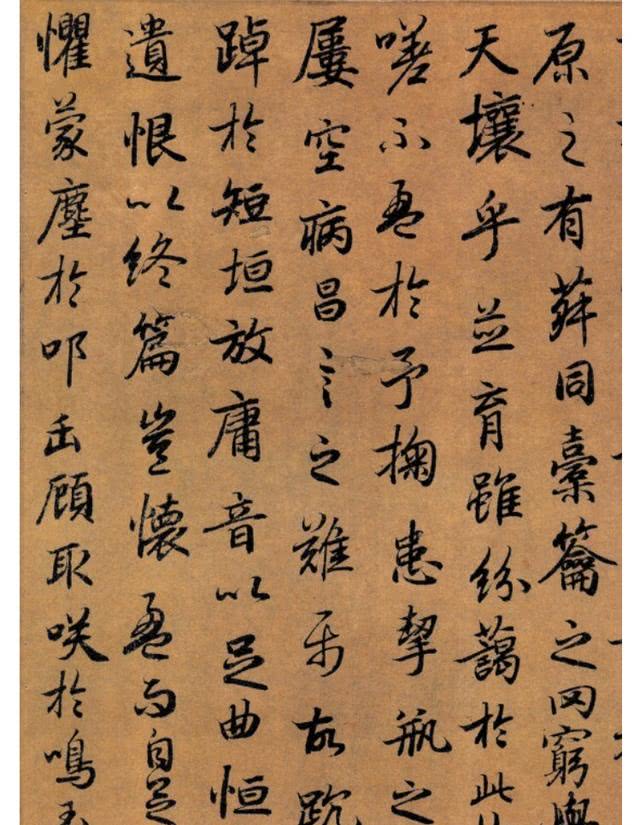 原之有菽同橐籥之罔窮與
天壤乎並育雖紛藹於此
嗟不盈於予掬患挈瓶之
屢空病昌言之難故踸
踔於短垣放庸音以足曲恒
遺恨以終篇豈懷盈而自足
懼蒙塵於叩缶顧取咲於鳴玉